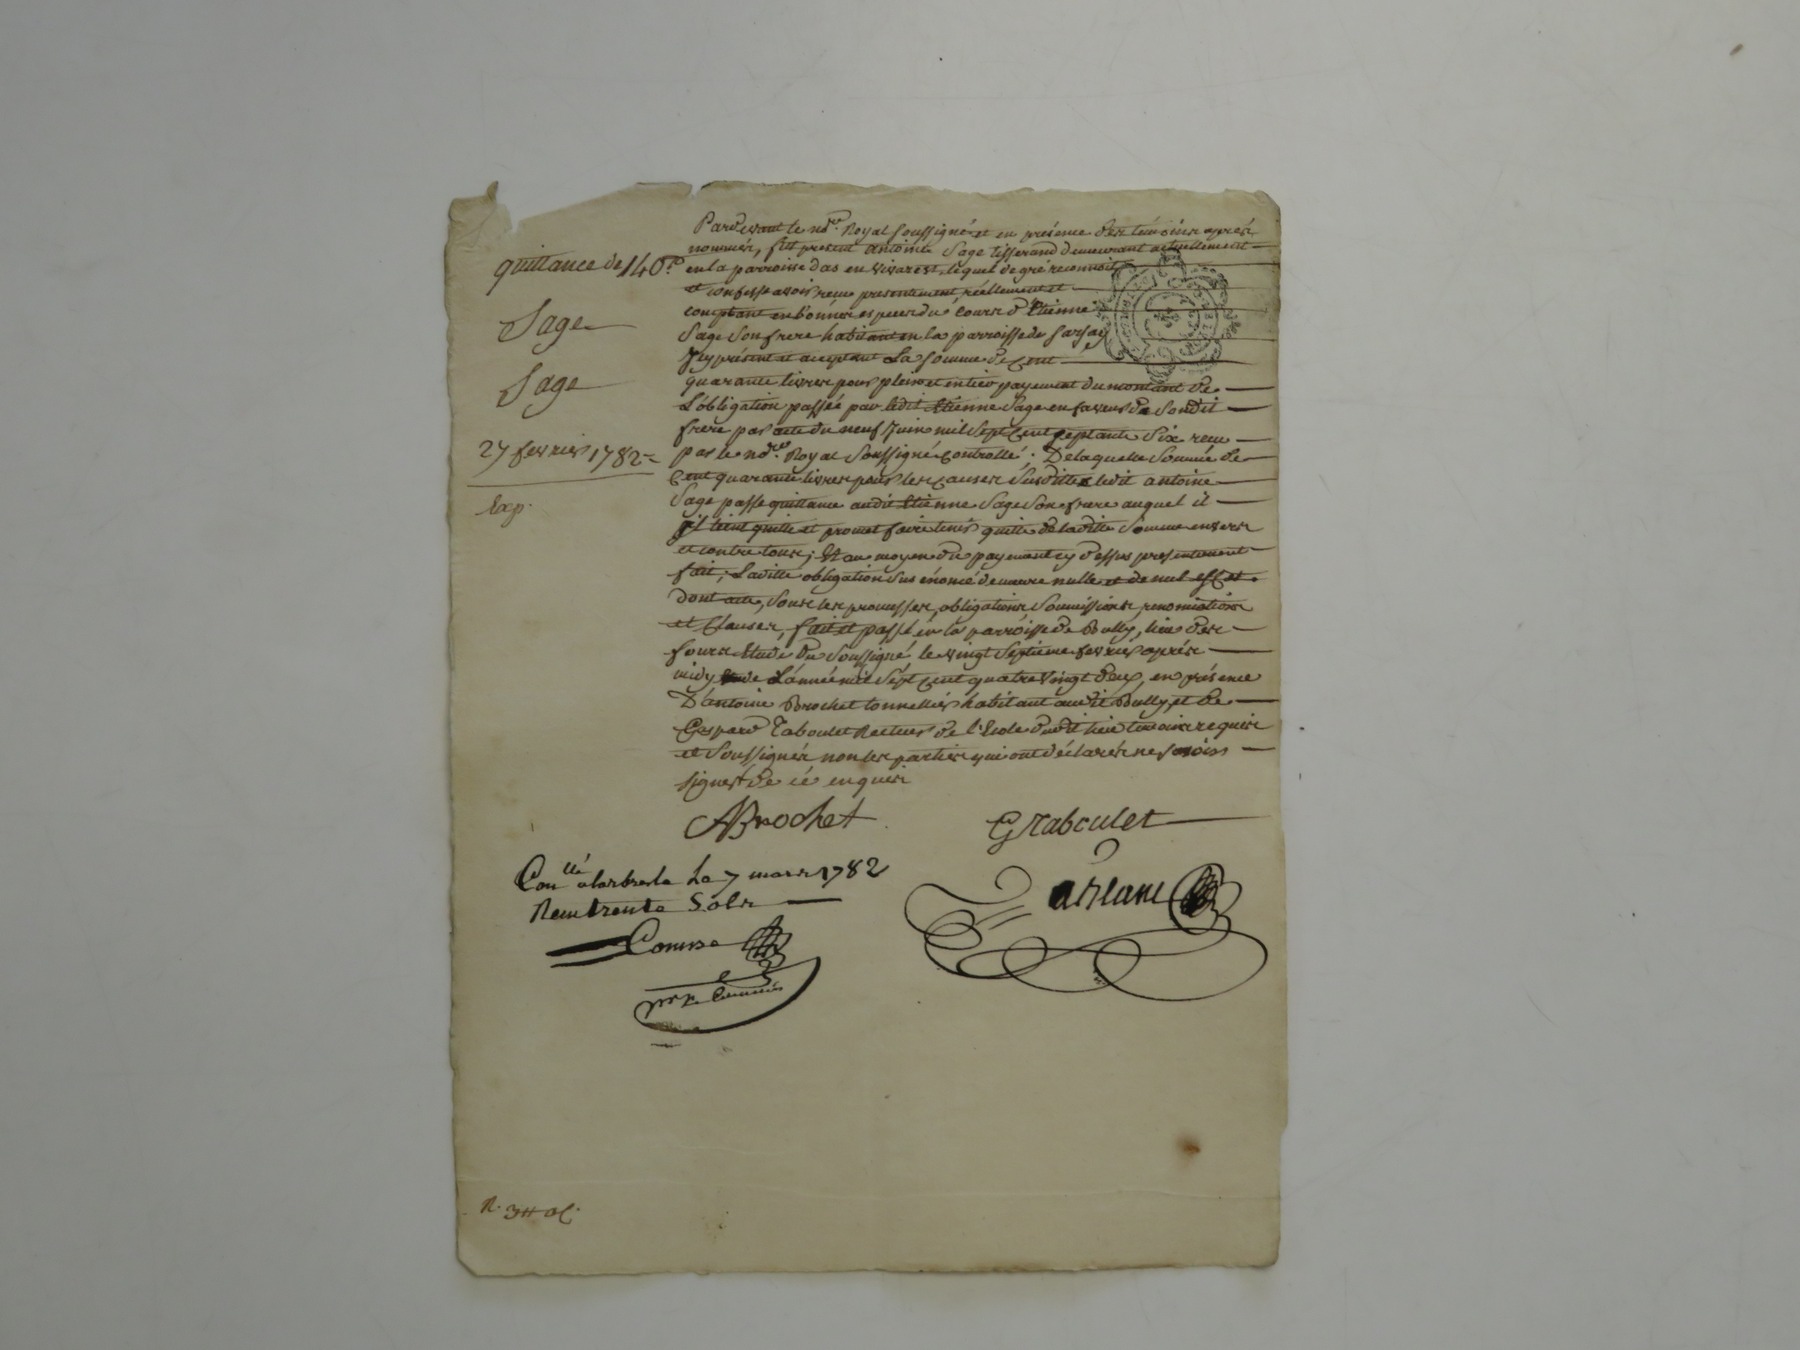 quittance de 140.#
Sage
Sage
27 fevrier 1782
Exp.
Pardevant le no.re Royal soussigné et en présence des témoins après
nommés, fut present antoine Sage tisserand demeurant actuellement
en la parroisse das en vivarest, lequel de gré reconnoit
et confesse avoir reçu presentement, réellement et
comptant en bonnes especes du cours d'Etienne
Sage son frere habitant en la parroisse de Sarsay
Icy présent et acceptant La somme de Cent
quarante livres pour plein et entier payement du montant de
L'obligation passée par ledit Etienne Sage en faveur de Sondit
frere par acte du neuf Juin mil Sept Cent Septante Six reçu
par le no.re Royal Soussigné Controllé. De laquelle Somme de
Cent quarante livres pour les causes Susdittes ledit antoine
Sage passe quittance audit Etienne Sage Son frere auquel il
tient quitte et promet faire tenir quitte de laditte Somme envers
et contre tous; Et au moyen du payement cy dessus presentement
fait; Laditte obligation Sus énoncé demeure nulle et de nul effet.
dont acte, Sous les promesses, obligations Soumissions renonciations
et Clauses, fait et passé en la parroisse de Bully, lieu des
fours Etude du Soussigné le vingt Septieme fevrier après
midy de L'année mil Sept Cent quatre vingt deux, en présence
D'antoine Brochet tonnellier habitant audit Bully, et de
Gaspard Raboulet Recteur de l'Ecole dudit lieu temoins requis
et Soussignés non les parties qui ont déclarés ne Savoir
signer de ce enquis
ABrochet
GRaboulet
Con.llé a larbresle Le 7 mars 1782
Reçu trente Sols